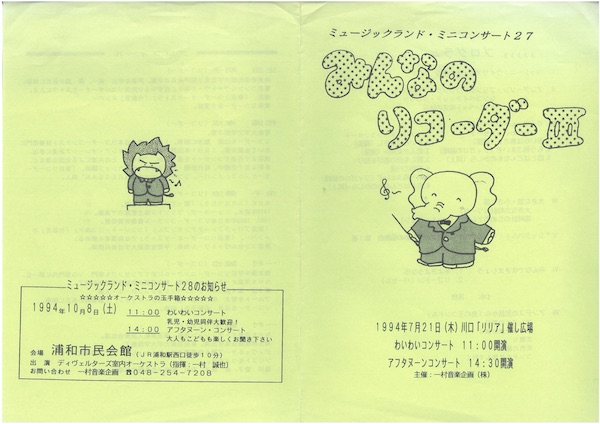 ミュージックランド・ミニコンサート27
みんなの
リコーダーⅢ
1994年7月21日(木)川口「リリア」催し広場
わいわいコンサート 11:00開演
アフタヌーンコンサート 14:30開演
主催:一村音楽企画(株)
ミュージックランド・ミニコンサート28のお知らせ
☆☆☆☆☆オーケストラの玉手箱☆☆☆☆☆
1994年10月8日(土) 11:00 わいわいコンサート
乳児・幼児同伴大歓迎!
14:00 アフタヌーン・コンサート
大人もこどもも楽しくお聞き下さい
会場 浦和市民会館(JR浦和駅西口徒歩10分)
出 演 ディヴェルターズ室内オーケストラ(指揮:一村 誠也)
お問い合わせ 一村音楽企画 ☎048-254-7208